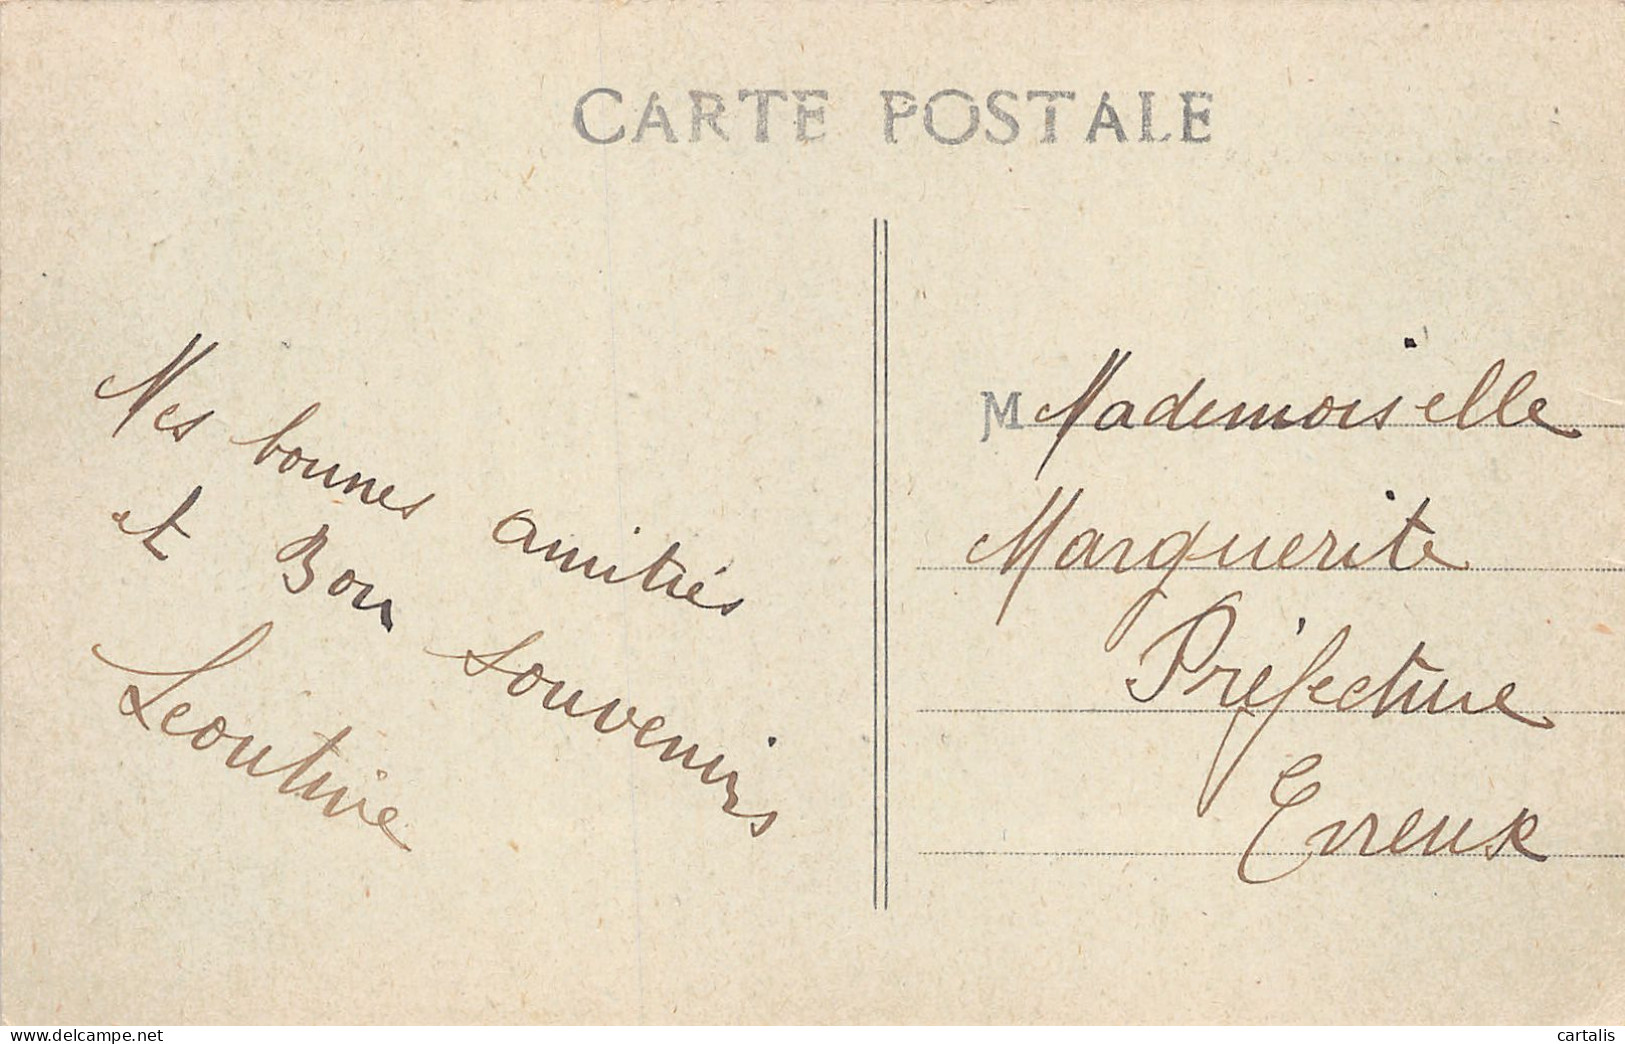 CARTE POSTALE
Mes bonnes amitiés
et Bon souvenirs
Leontine
M Mademoiselle
Marguerite
Préfecture
Evreux
www.delcampe.net
cartalis